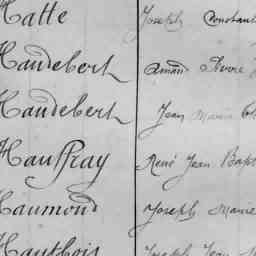 Hatte Joseph Constant
Haudebert Amand Pierre
Haudebert Jean Marie
Hauffray René Jean Bap
Haumond Joseph Marie
Hautbois Joseph Jean